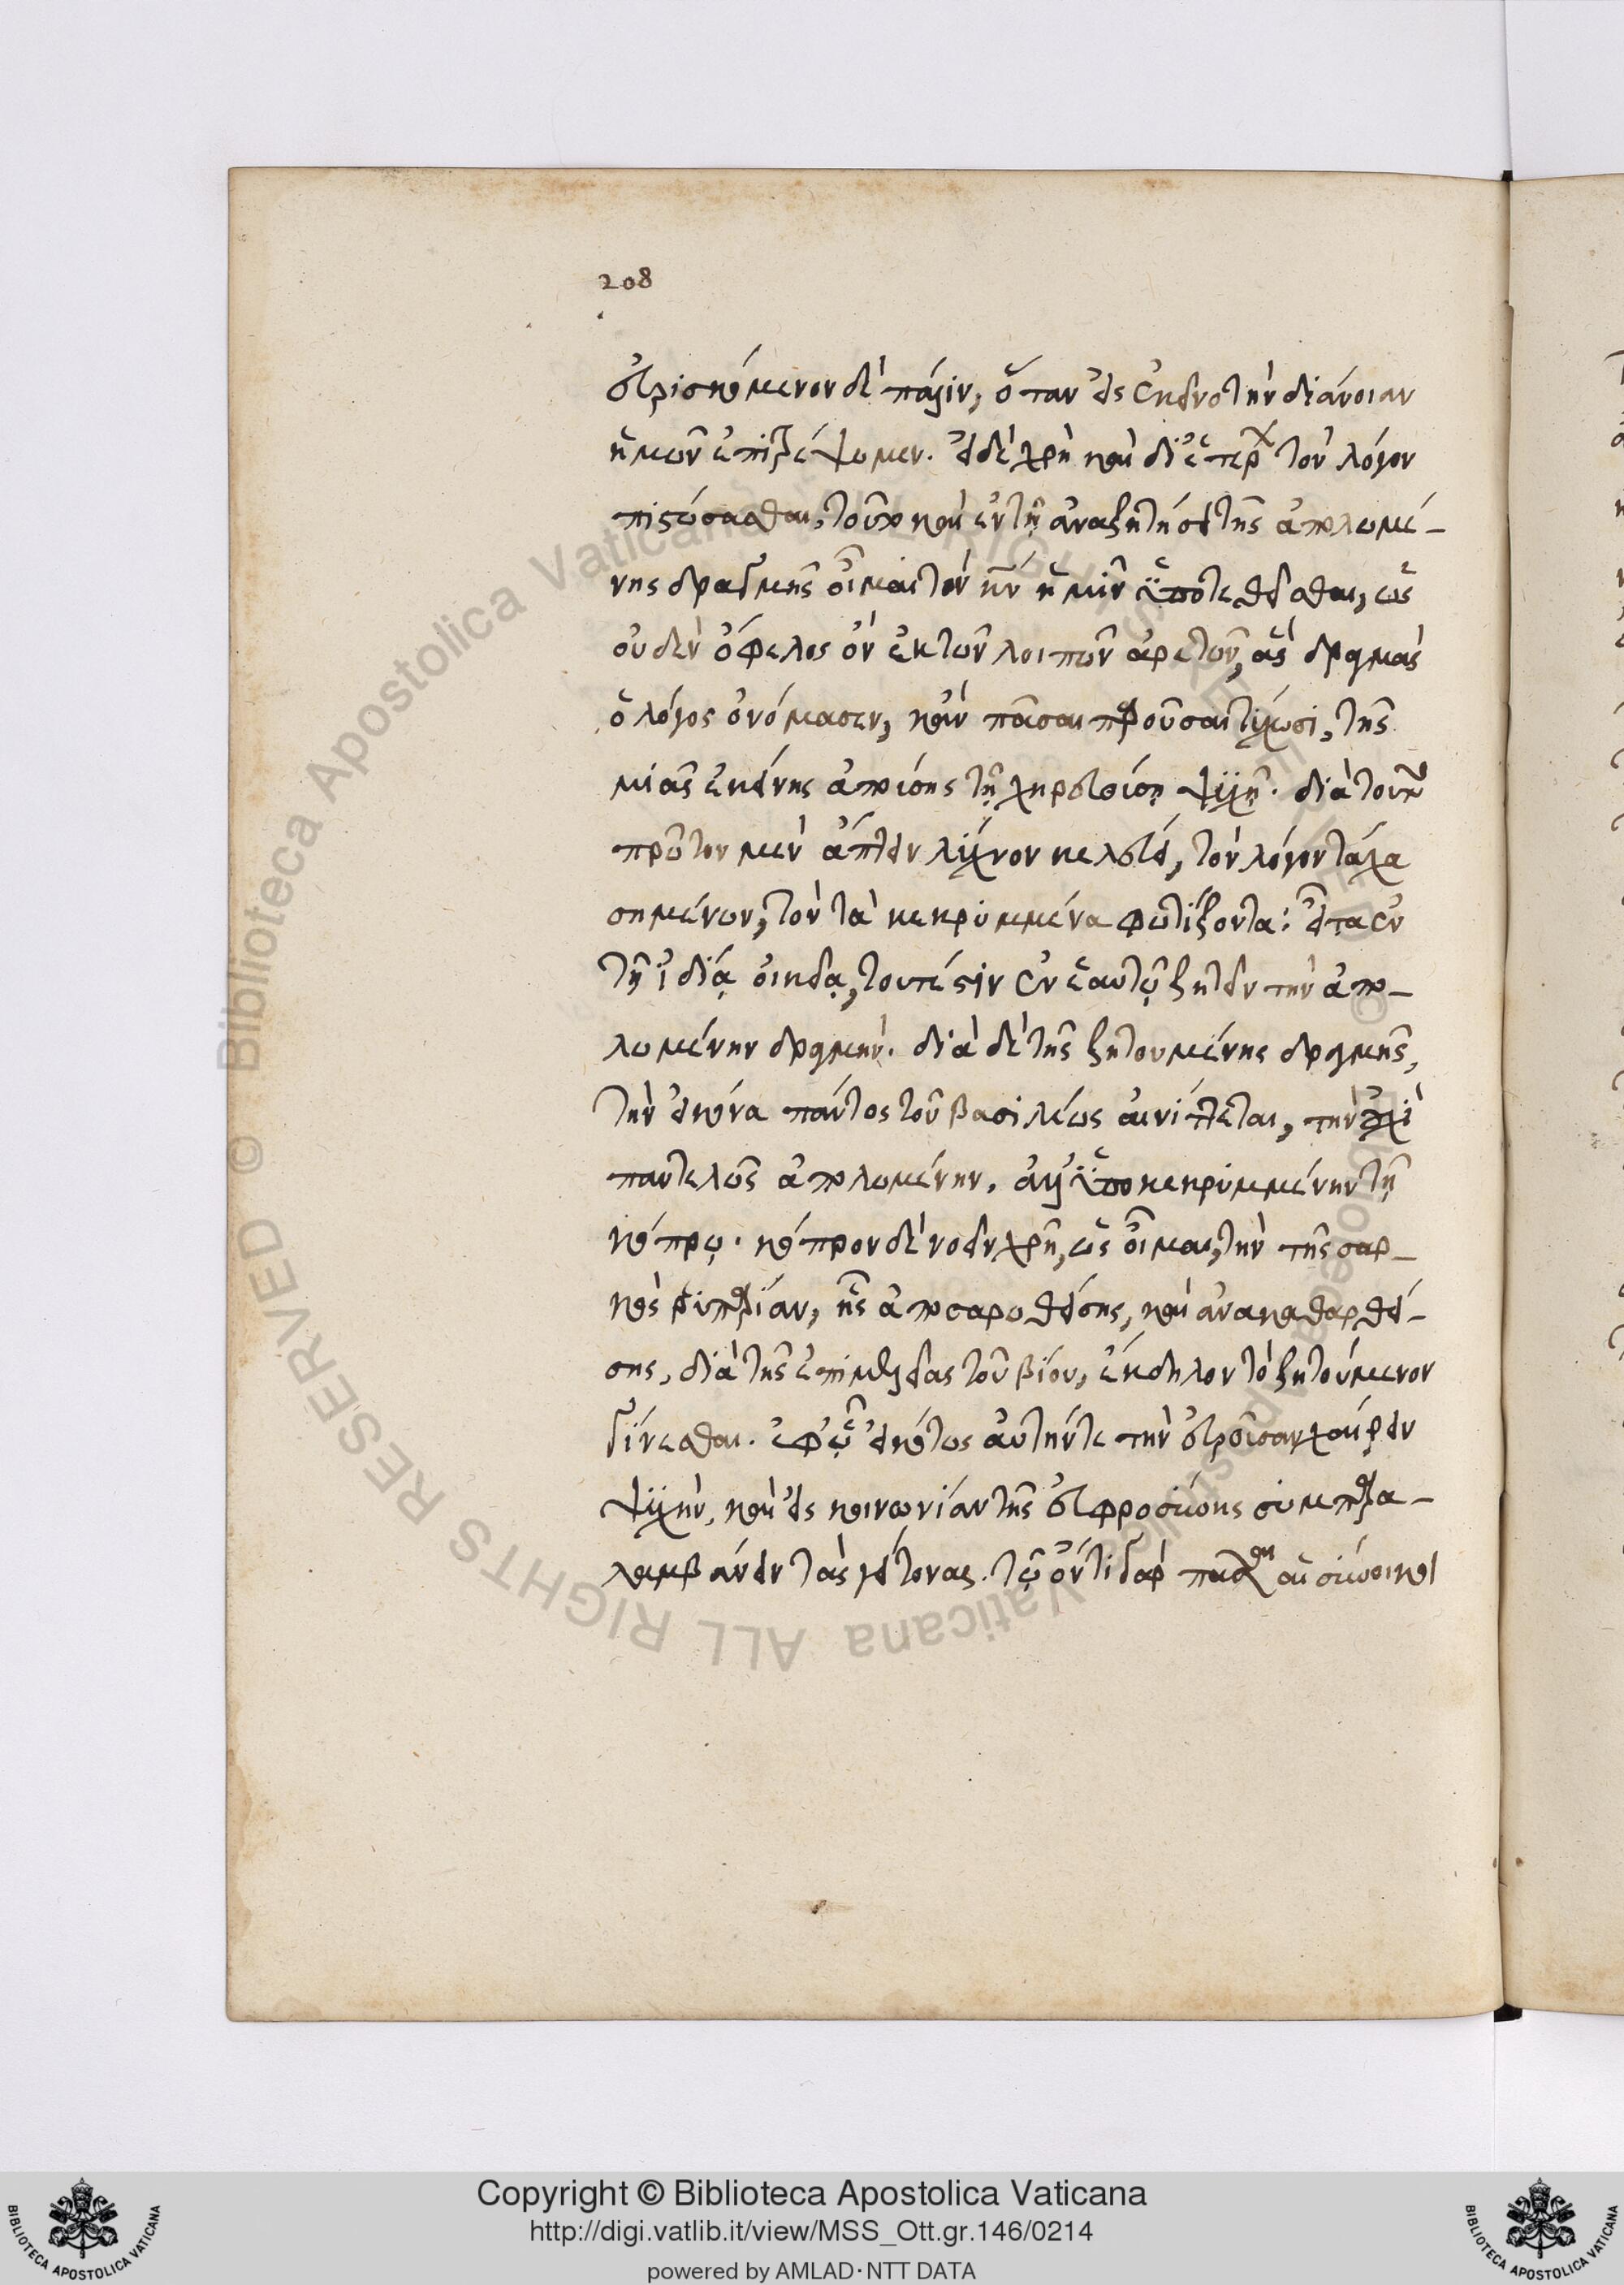 208
εὑρισκόμενον δὲ πάλιν, ὅταν εἰς ἐκεῖνο τὴν διάνοιαν
ἡμῶν ἐπιστρέψωμεν. εἰ δὲ χρὴ καὶ δι' ἑτέρων τὸν λόγον
πιστώσασθαι, τοῦτο καὶ ἐν τῇ ἀναζητήσει τῆς ἀπολωμέ-
νης δραγμῆς οἶμαι τὸν νῦν ἡμῖν ὑποτεθεῖσθαι, ὡς
οὐδὲν ὄφελος ὂν ἐκ τῶν λοιπῶν ἀρετῶν, ἃς δραχμὰς
ὁ λόγος ὀνόμασεν, κἂν πᾶσαι παροῦσαι τύχωσι, τῆς
μιᾶς ἐκείνης ἀπούσης τῇ χηρευούσῃ ψυχῇ. διὰ τοῦτο
πρῶτον μὲν ἅπτειν λύχνον κελεύει, τὸν λόγον τάχα
σημαίνων, τὸν τὰ κεκρυμμένα φωτίζοντα: εἶτα ἐν
τῇ ἰδίᾳ οἰκείᾳ, τουτέστιν ἐν ἑαυτῷ ζητεῖν τὴν ἀπο-
λωμένην δραχμήν. διὰ δὲ τῆς ζητουμένης δραχμῆς,
τὴν εἰκόνα πάντως τοῦ βασιλέως αἰνίττεται, τὴν οὐχὶ
παντελῶς ἀπολωμένην. ἀλλ' ὑποκεκρυμμένην τῇ
κόπρῳ. κόπρον δὲ νοεῖν χρὴ, ὡς οἶμαι, τὴν τῆς σαρ-
κὸς ῥυπαρίαν, ἧς ἀποσαρωθείσης, καὶ ἀνακαθαρθεί-
σης, διὰ τῆς ἐπιμελείας τοῦ βίου, ἔκδηλον τὸ ζητούμενον
γίνεσθαι. ἐφ' ᾧ εἰκότως αὐτήν τε τὴν εὑροῦσαν χαίρειν
ψυχὴν, καὶ εἰς κοινωνίαν τῆς εὐφροσύνης συμπαρα-
λαμβάνειν τὰς γείτονας. τῷ ὄντι γὰρ πᾶσαι αἱ σύνοικοι